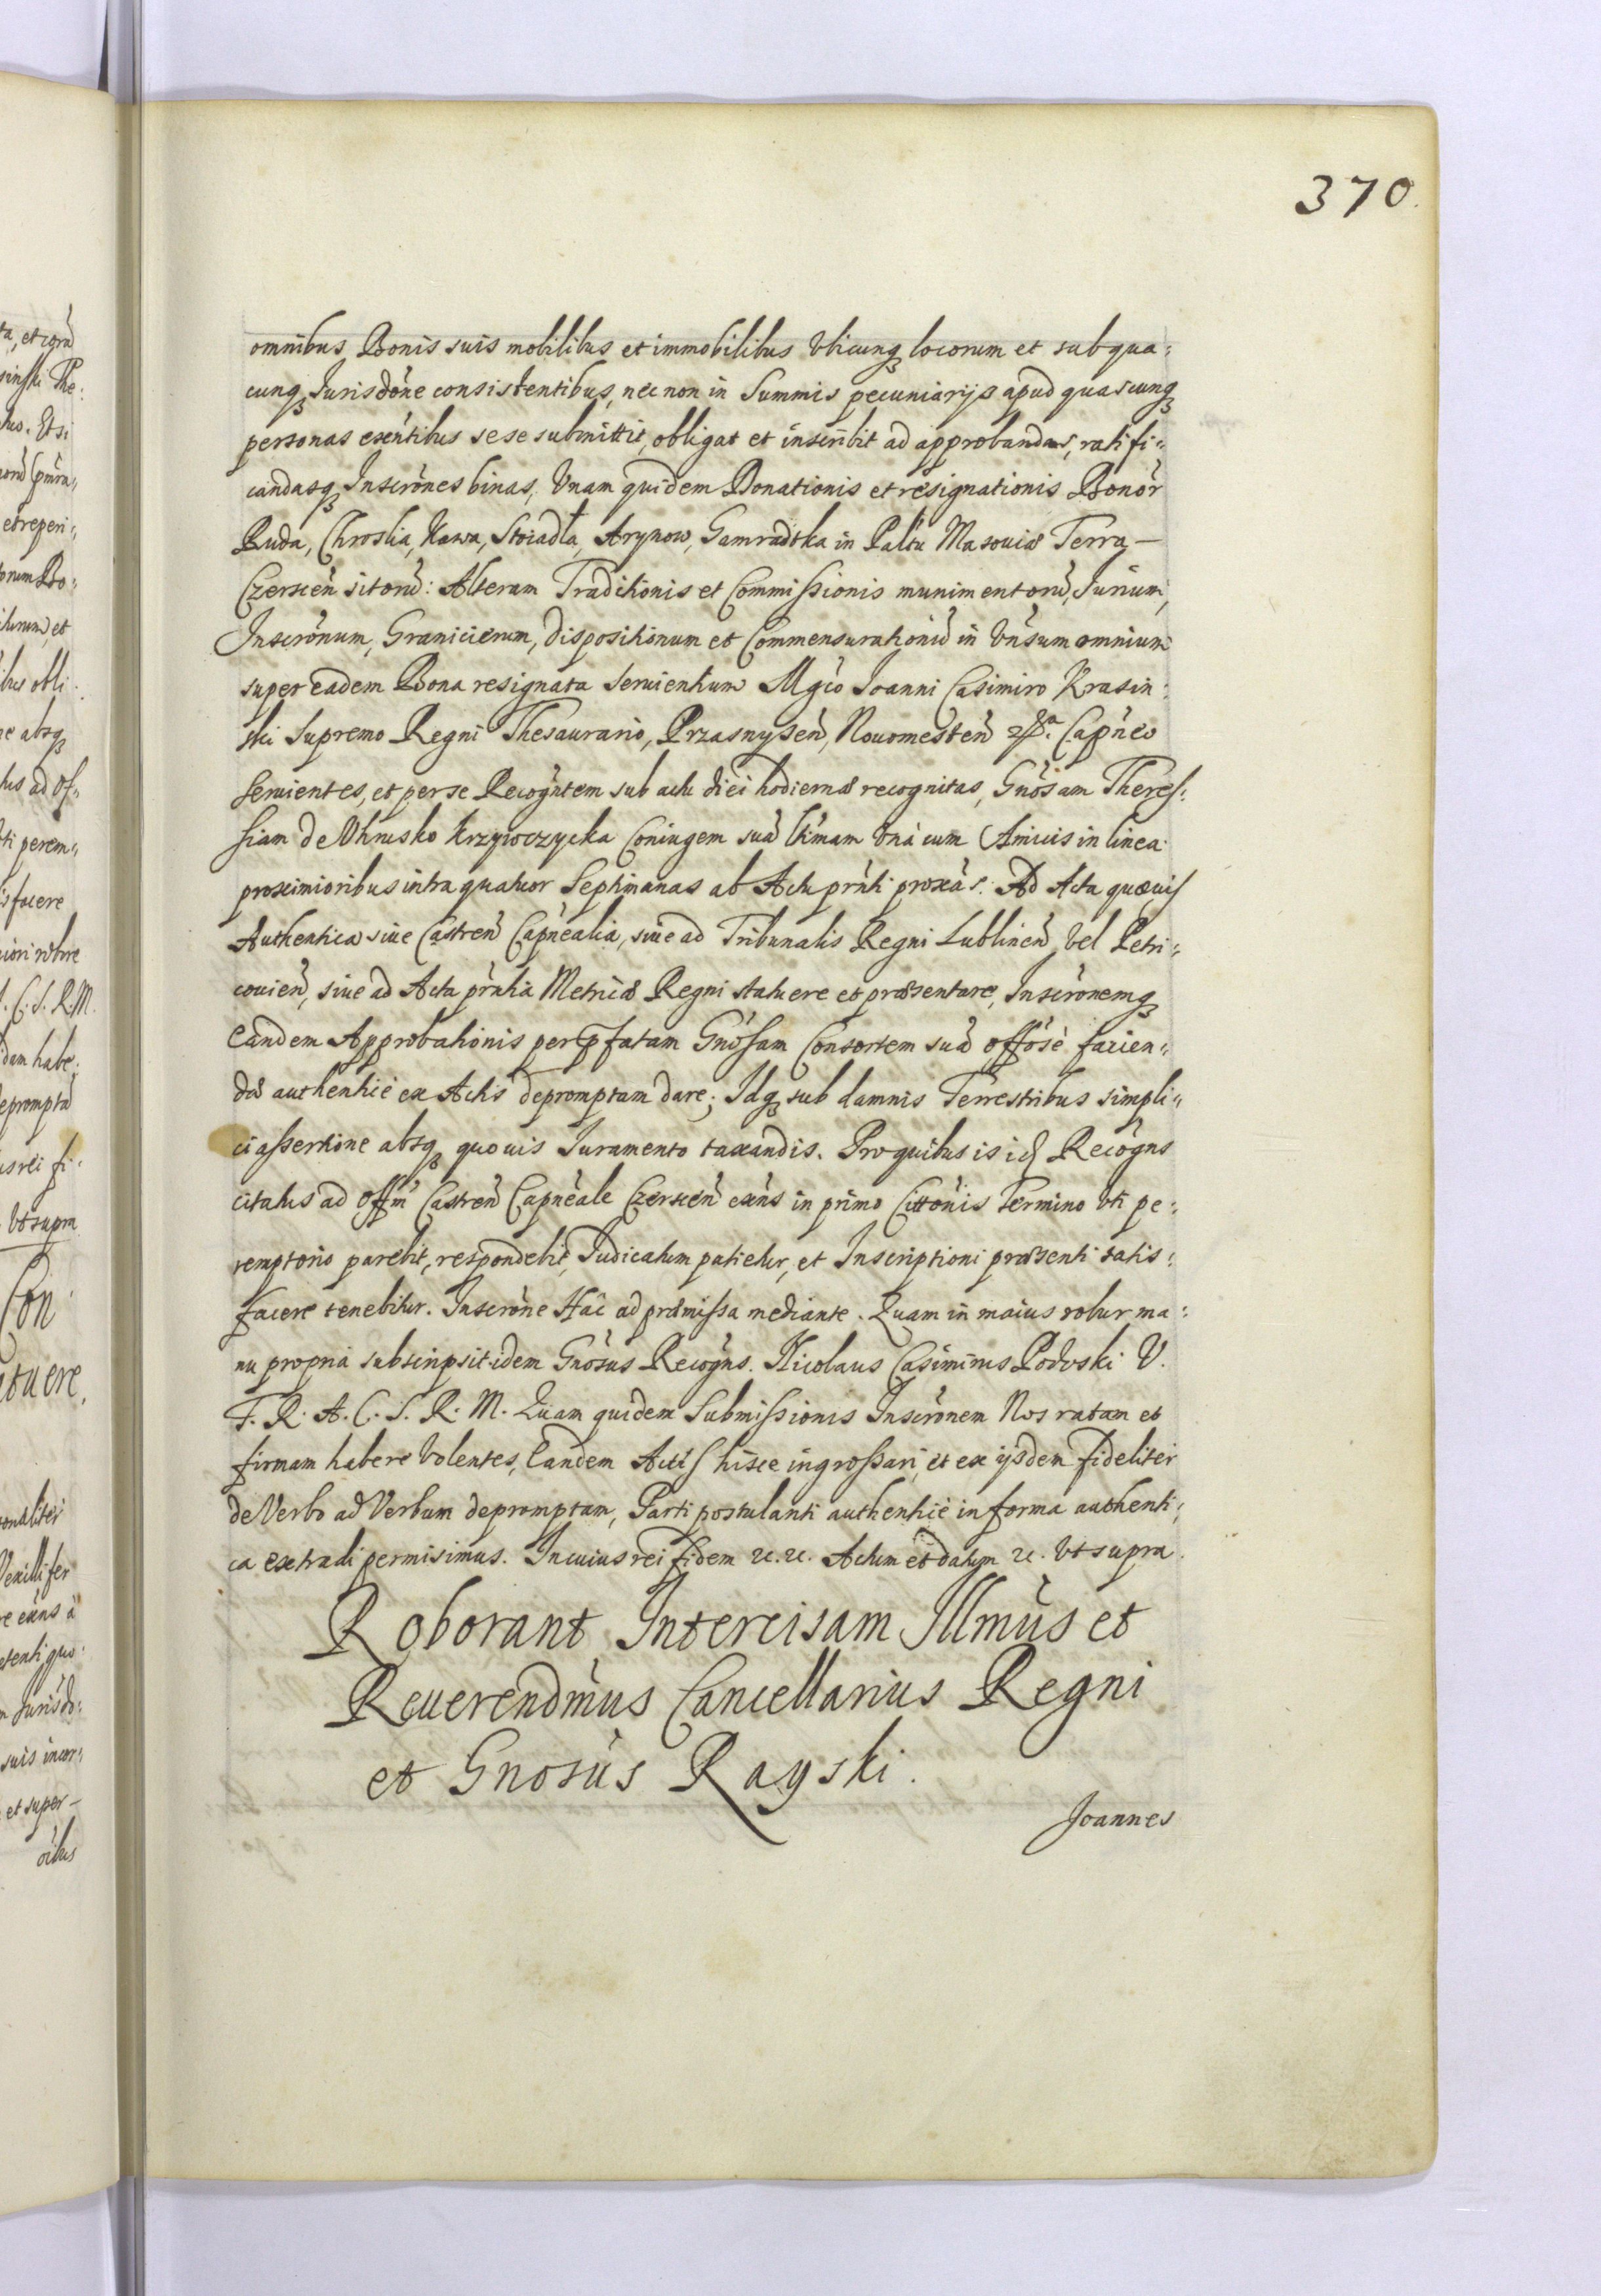 370.
omnibus Bonis suis mobilibus et immobilibus Vbicunq₃ locorum et sub qua:
cunq₃ Jurisdōne consistentibus, nec non in Summis pecuniarijs apud quascunq₃
personas exēntibus sese submittit, obligat et inscribit ad approbandas, ratifi:
candasq₃ Inscrōnes binas, Vnam quidem Donationis et resignationis Bonōr
Ruda, Chroslia, Kawa, Stoiadła, Arynow, Gamradtka in Palтu Masouiæ Terra —
Czerscēn sitorū: Alteram Traditionis et Commissionis munimentorū, Jurium,
Inscrōnum, Granicierum, dispositionum et Commensurationū in Vnsum omnium
super eadem Bona resignata seruientium Mgco Joanni Casimiro Krasin:
ski Supremo Regni Thesaurario, Przasnysēn, Nouomestēn Capneo
seruientes, et per se Recogntem sub actu diei hodiernæ recognitas, Gnōsam Theres:
siam de Ohnisko Krzywczycka Coniugem suā ltimam Vnà cum Amicis in linea
proximioribus intra quatuor Septimanas ab Actu prnti proxas. Ad Acta quæuis
Authentica siue Castrēn Capnealia, siue ad Tribunalis Regni Lublinēn Vel Petri:
couiēn, siue ad Acta prntia Metricæ Regni statuere et præsentare, Inscrōnemq₃
Eandem Approbationis per pfatam Gnōsam Consortem suā offōsè facien:
dā authenticè ex Actis depromptam dare; Idq₃ sub damnis Terrestribus simpli:
ci assertione absq₃ quouis Juramento taxandis. Pro quibus is id Recōgns
citatus ad Offm Castrēn Capnēale Czerscēn exns in primo Cittōnis Termino Vti pe:
remptorio parebit, respondebit, Judicatum patietur, et Inscriptioni præsenti satis:
facere tenebitur. Inscrōne Hac ad præmissa mediante. Quam in maius robur ma:
nu propria subscripsit idem Gnōsus Recōgns. Nicolaus Casimirus Podoski V.
T. R. A. C. S. R. M. Quam quidem Submissionis Inscrōnem Nos ratam et
firmam habere Volentes, Eandem Actis hisce ingrossari, et ex ijsdem fideliter
de Verbo ad Verbum depromptam, Parti postulanti authenticè in forma authenti:
ca extradi permisimus. In cuius rei fidem &c. &c. Actum et datum &c. Vt supra.
Roborant Intercisam Illmus et
Reuerendmus Cancellarius Regni
et Gnosus Rayski.
Joannes